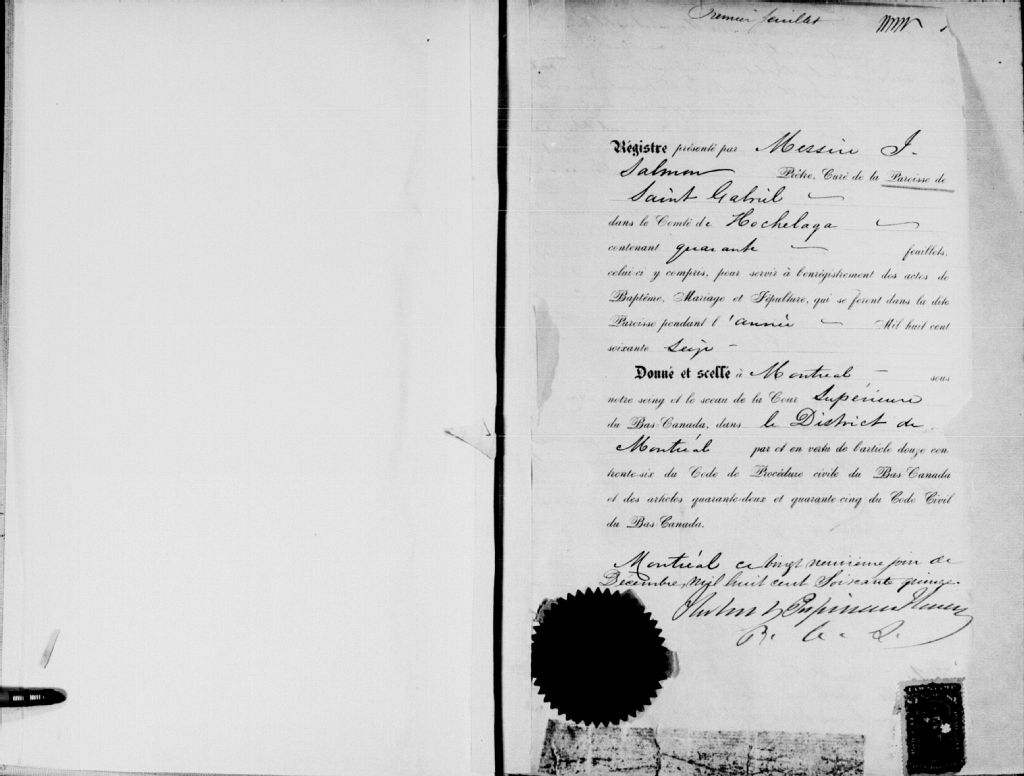 Premier feuillet
Régistre présenté par Messire J.
Salmon Prêtre, Curé de la Paroisse de
Saint Gabriel
dans le Comté de Hochelaga
contenant quarante feuillets,
celui-ci y compris, pour servir à l'enrégistrement des actes de
Baptême, Mariage et Sépulture, qui se feront dans la dite
Paroisse pendant l'année Mil huit cent
soixante seize
Donné et scellé à Montreal sous
notre seing et le sceau de la Cour Supérieure
du Bas-Canada, dans le District de
Montréal par et en vertu de l'article douze cen
trente-six du Code de Procédure civile du Bas-Canada
et des articles quarante-deux et quarante-cinq du Code Civil
du Bas-Canada.
Montréal ce vingt neuvième jour de
Décembre, mil huit cent Soixante quinze.
Hubert Papineau Honey
P. C. S.